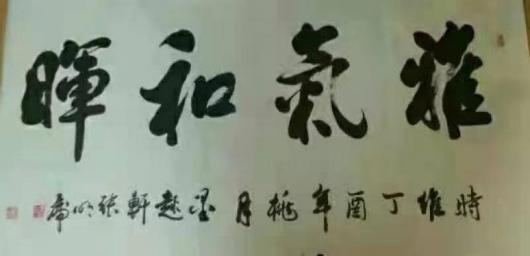 雅氣和暉
時維丁酉年桃月墨趣軒張小虎